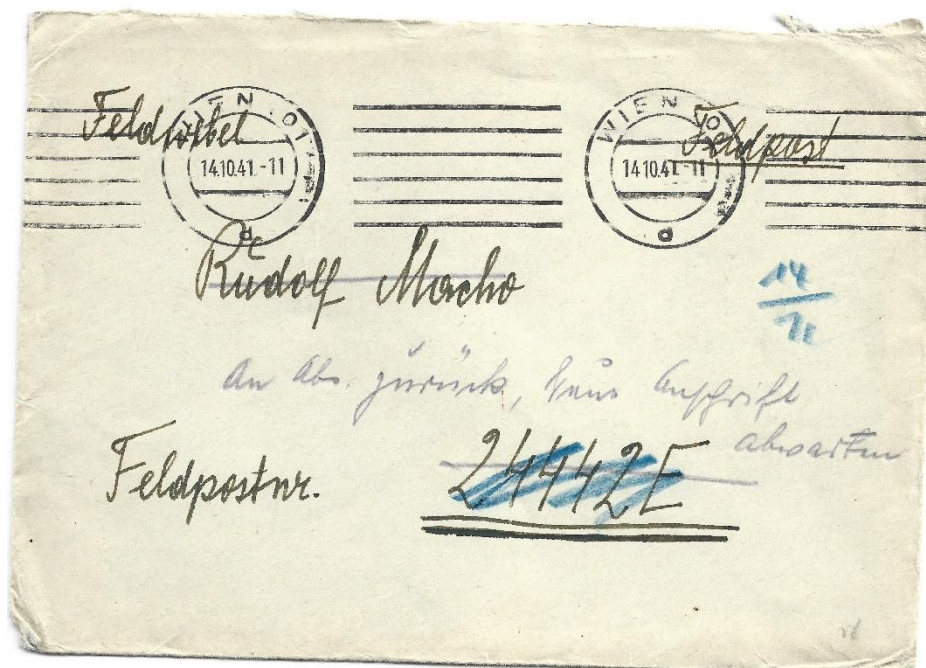 Feldwebel
Feldpost
WIEN 101
14.10.41.-11
d
WIEN 101
14.10.41.-11
d
Rudolf Macho
14
An Abs. zurück, neue Anschrift
abwarten
Feldpostnr. 24442E